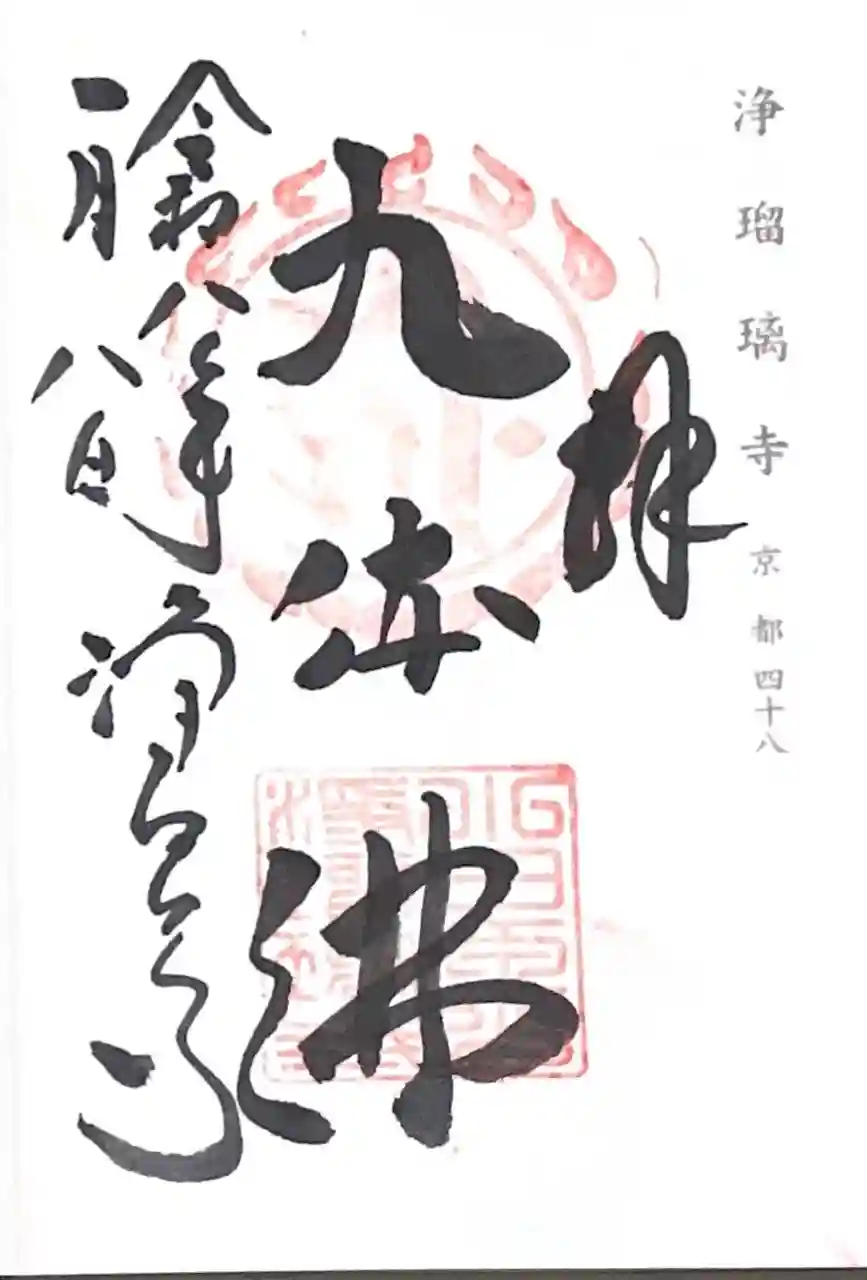 浄瑠璃寺 京都四十八
拝
九体佛
令和八年 浄瑠璃寺
一月八日